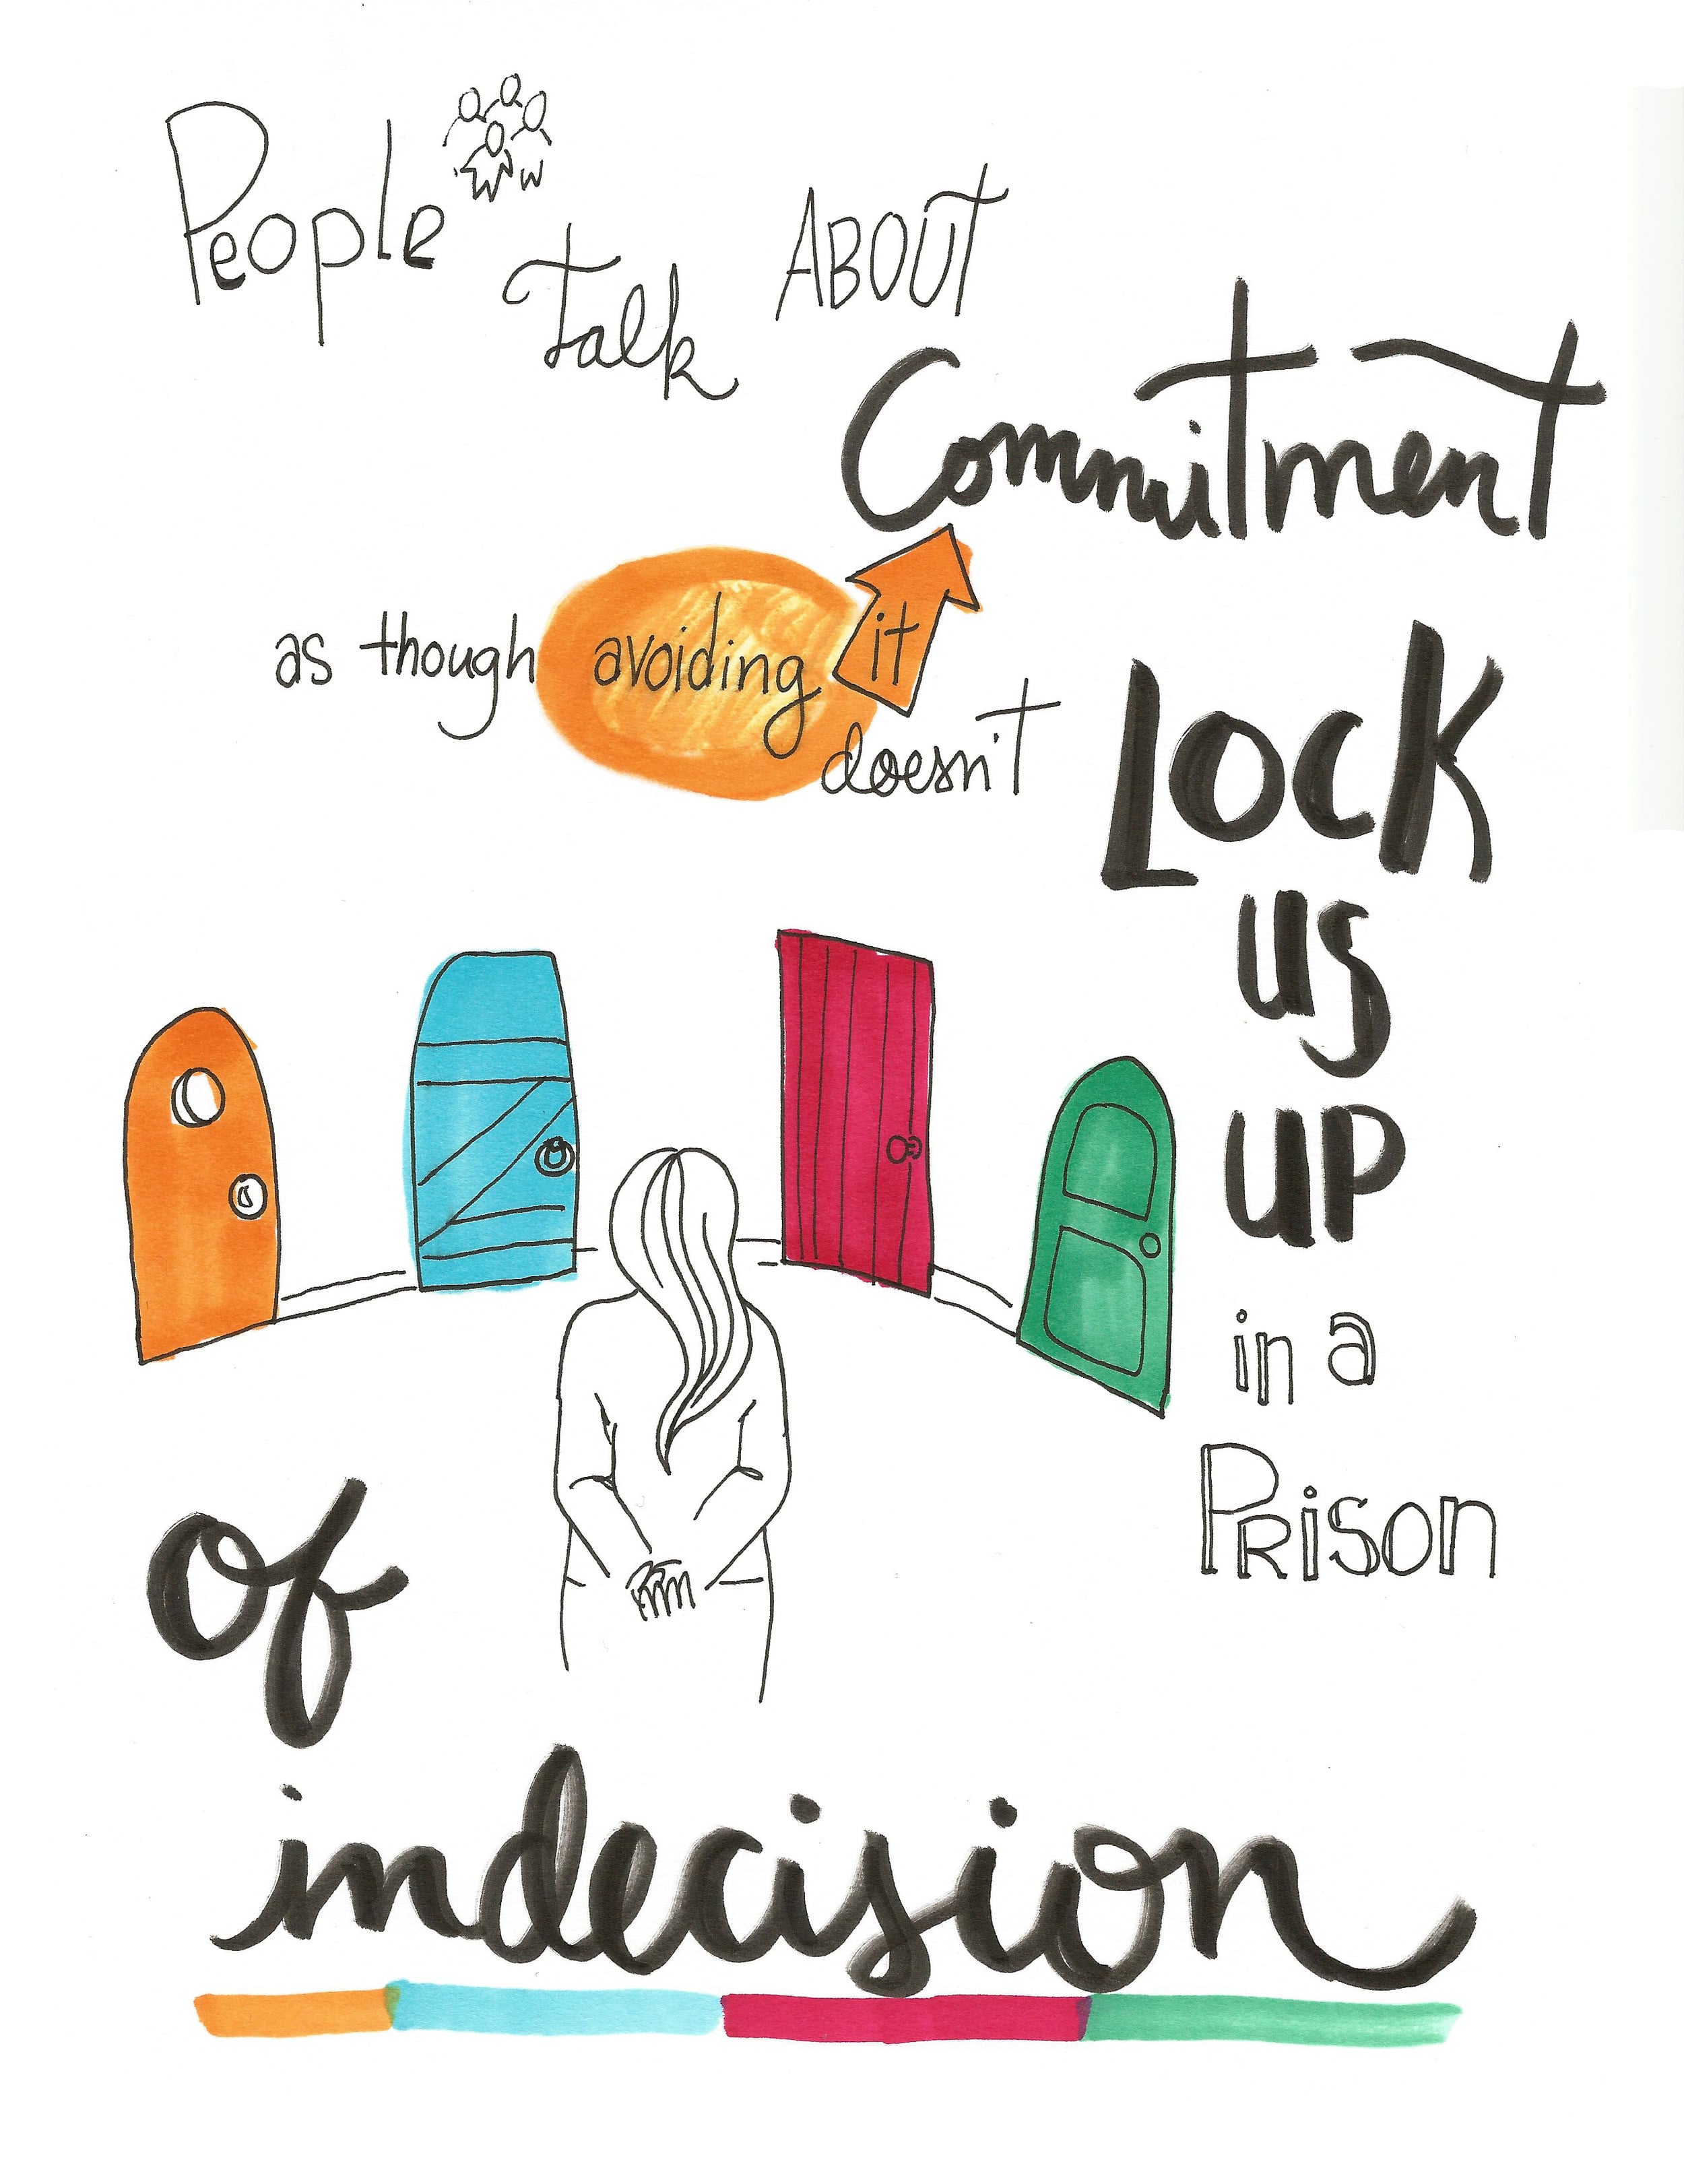 People
Talk
ABOUT
Commitment
as though avoiding it
doesn't
LOCK
us
up
in a
PRison
of
indecision